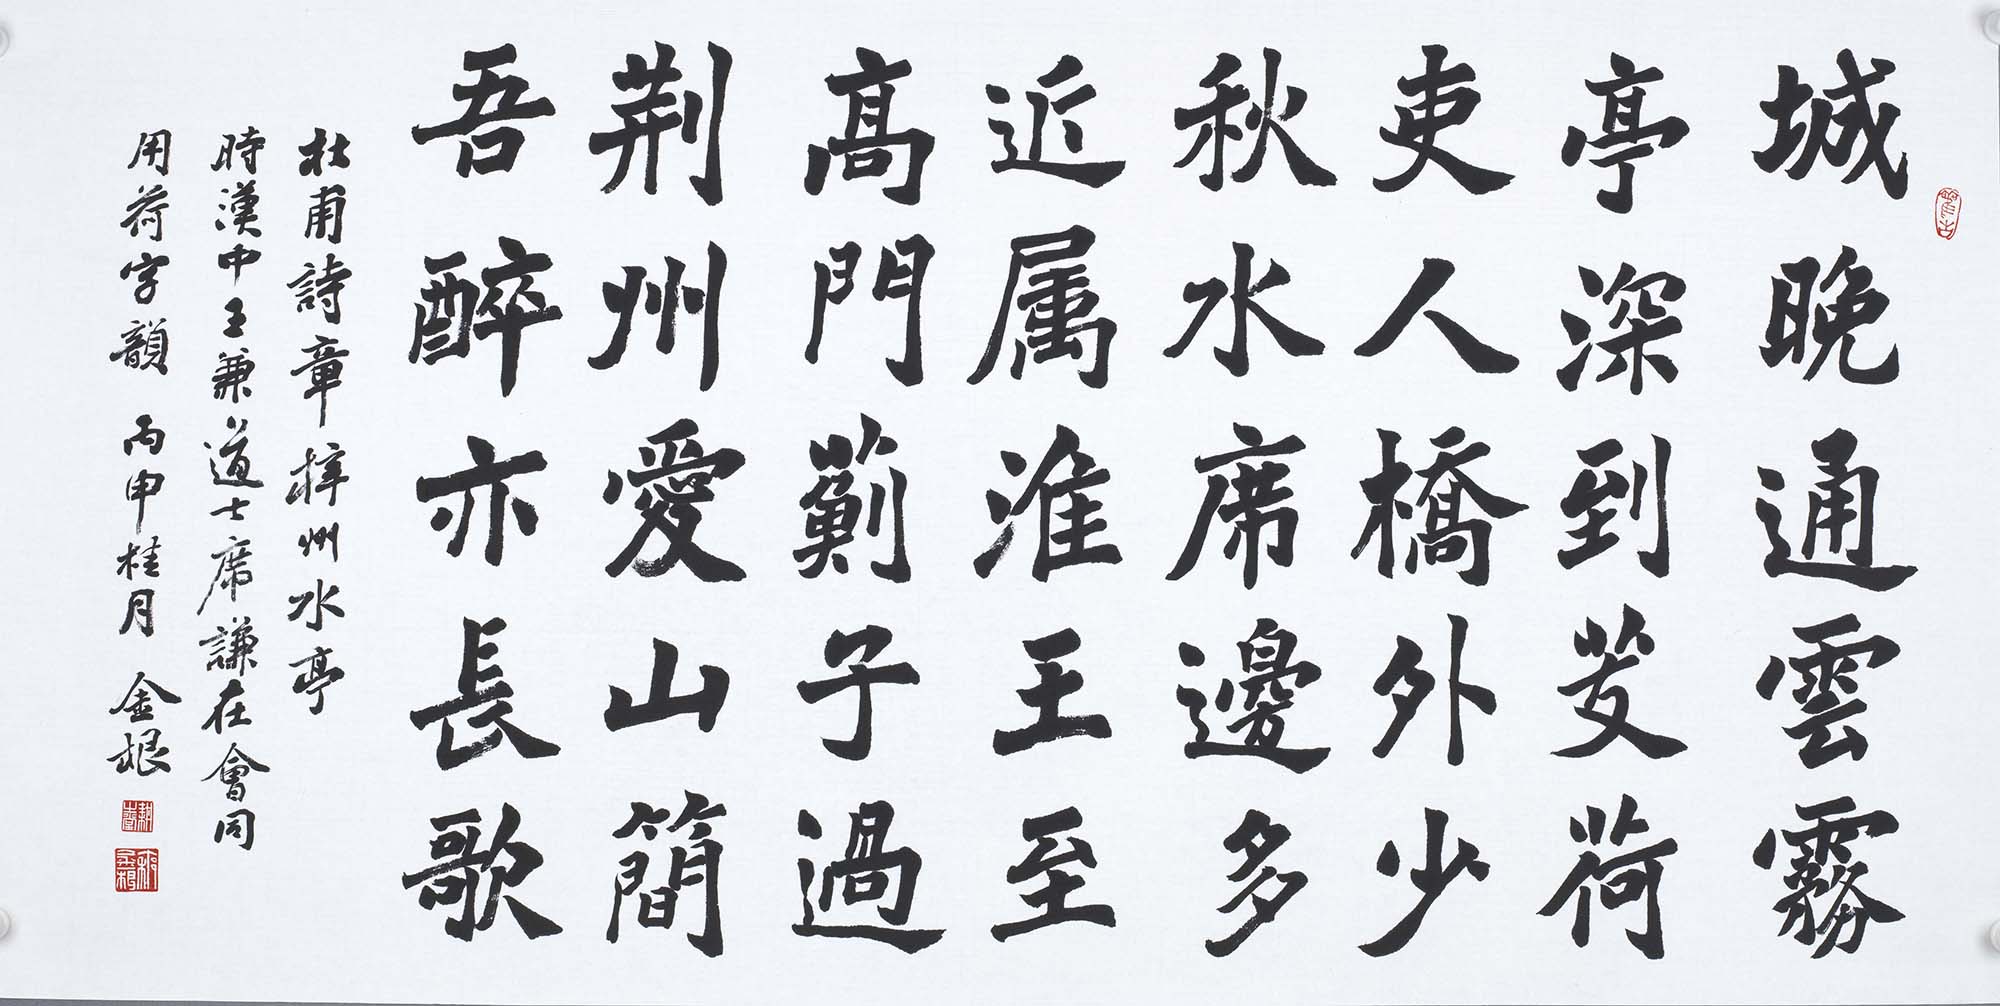 城晚通雲霧
亭深到芰荷
吏人橋外少
秋水席邊多
近属淮王至
高門薊子過
荆州愛山簡
吾醉亦長歌
杜甫詩章梓州水亭
時漢中王兼道士席謙在會同
用荷字韻 丙申桂月 金根